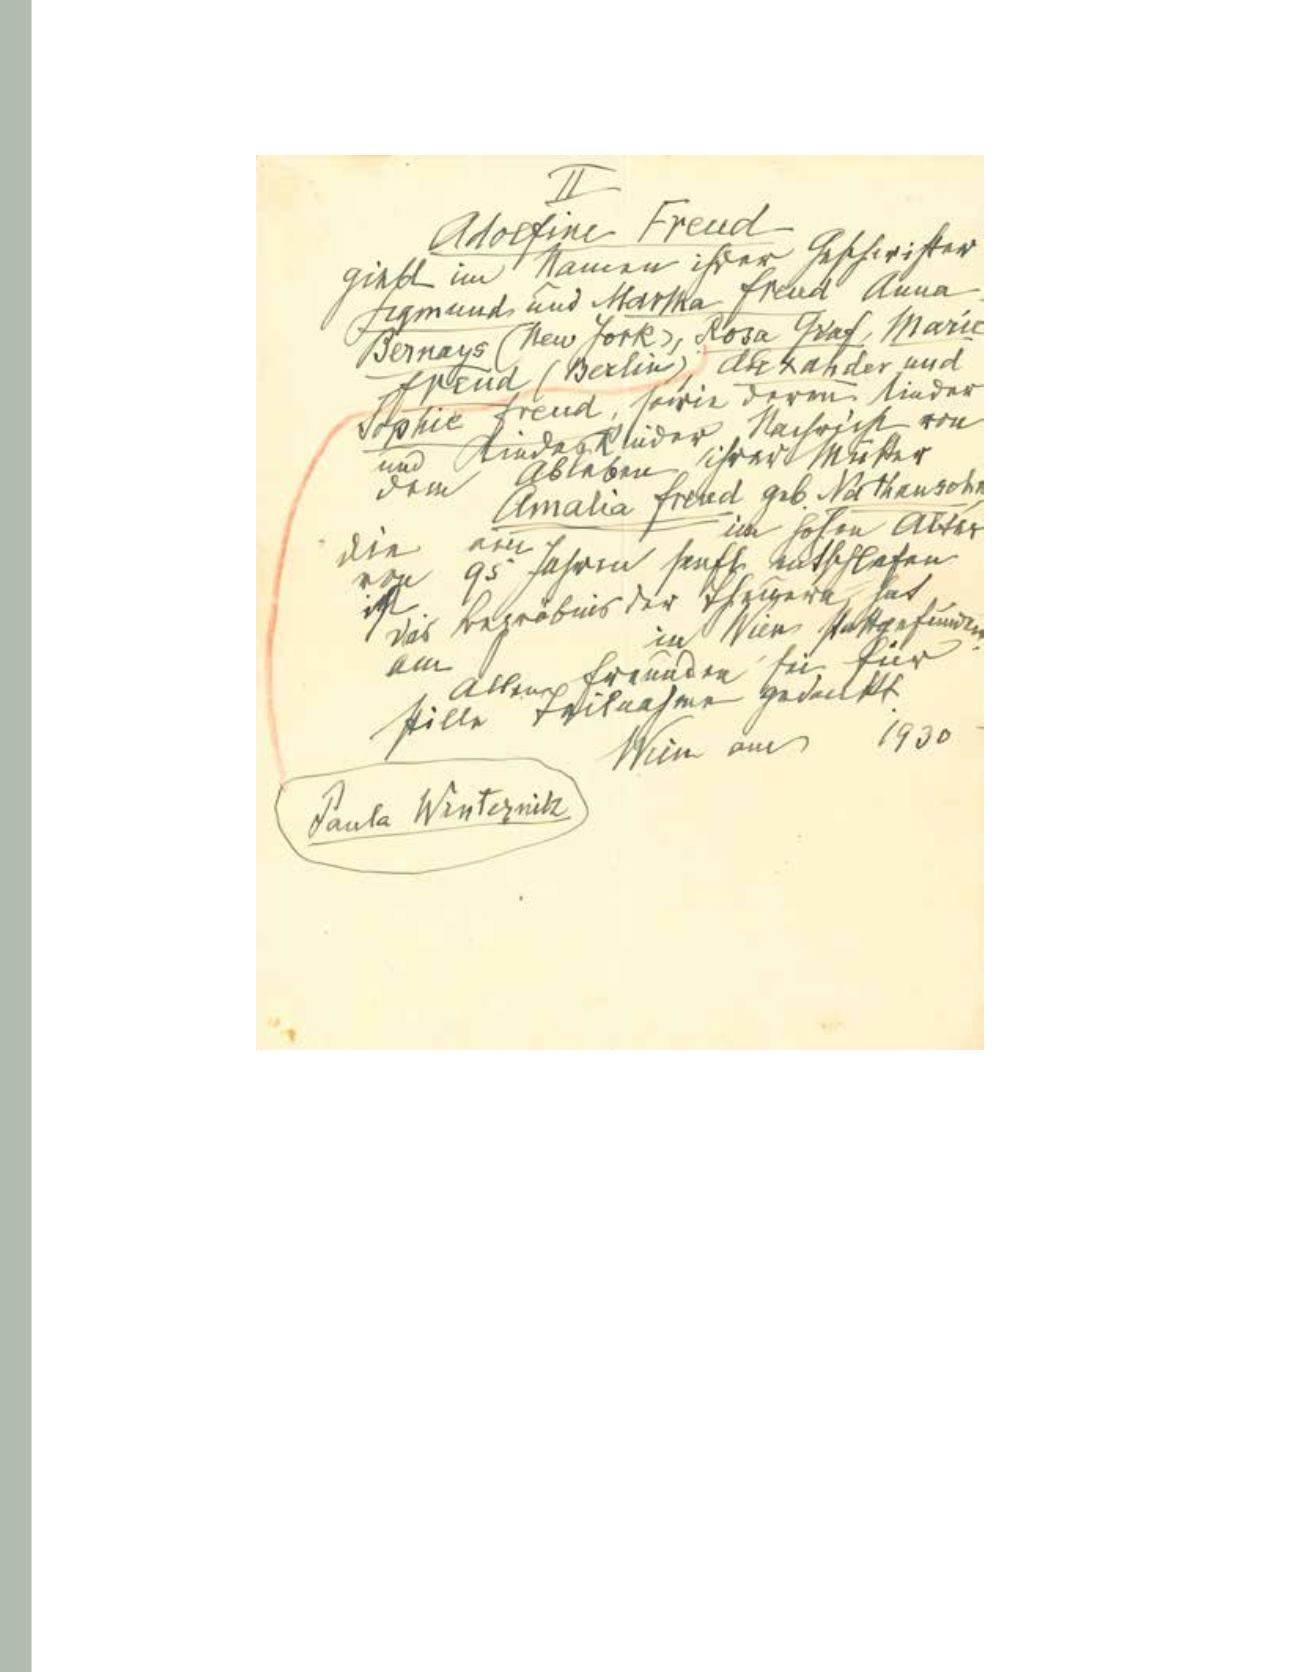 II
Adolfine Freud
giebt im Namen ihrer Geschwister
Sigmund und Martha Freud Anna
Bernays (New York), Rosa Graf, Marie
Freud (Berlin), Alexander und
Sophie Freud, sowie deren Kinder
und Kindeskinder Nachricht von
dem Ableben ihrer Mutter
Amalia Freud geb. Nathansohn
die am im hohen Alter
von 95 Jahren sanft entschlafen
ist
Das Begräbnis der Theuern hat
am in Wien stattgefunden.
Allen Freunden sei für
stille Teilnahme gedankt.
Wien am 1930
Paula Winternitz